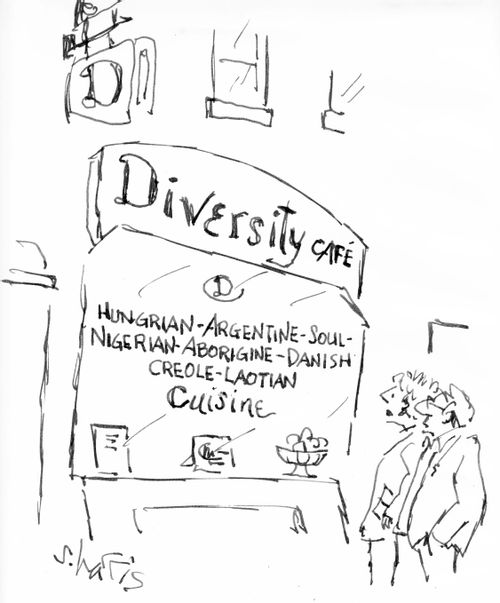 D
Diversity CAFÉ
D
HUNGRIAN-ARGENTINE-SOUL-
NIGERIAN-ABORIGINE-DANISH
CREOLE-LAOTIAN
Cuisine
S.harris